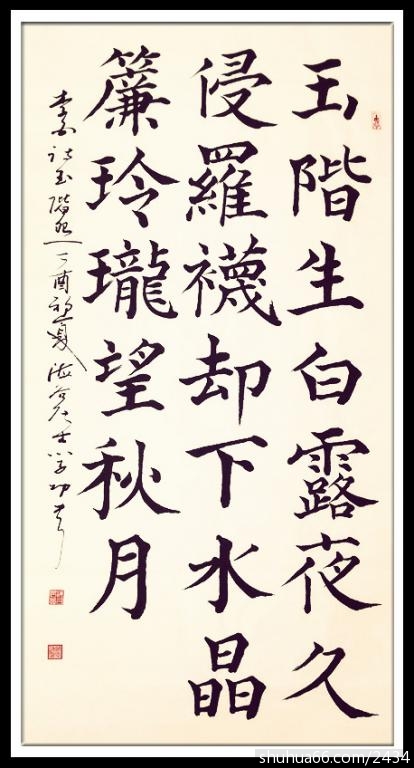 玉階生白露夜久
侵羅襪却下水晶
簾玲瓏望秋月
李白詩玉階怨 丁酉初夏
shuhua66.com/2434